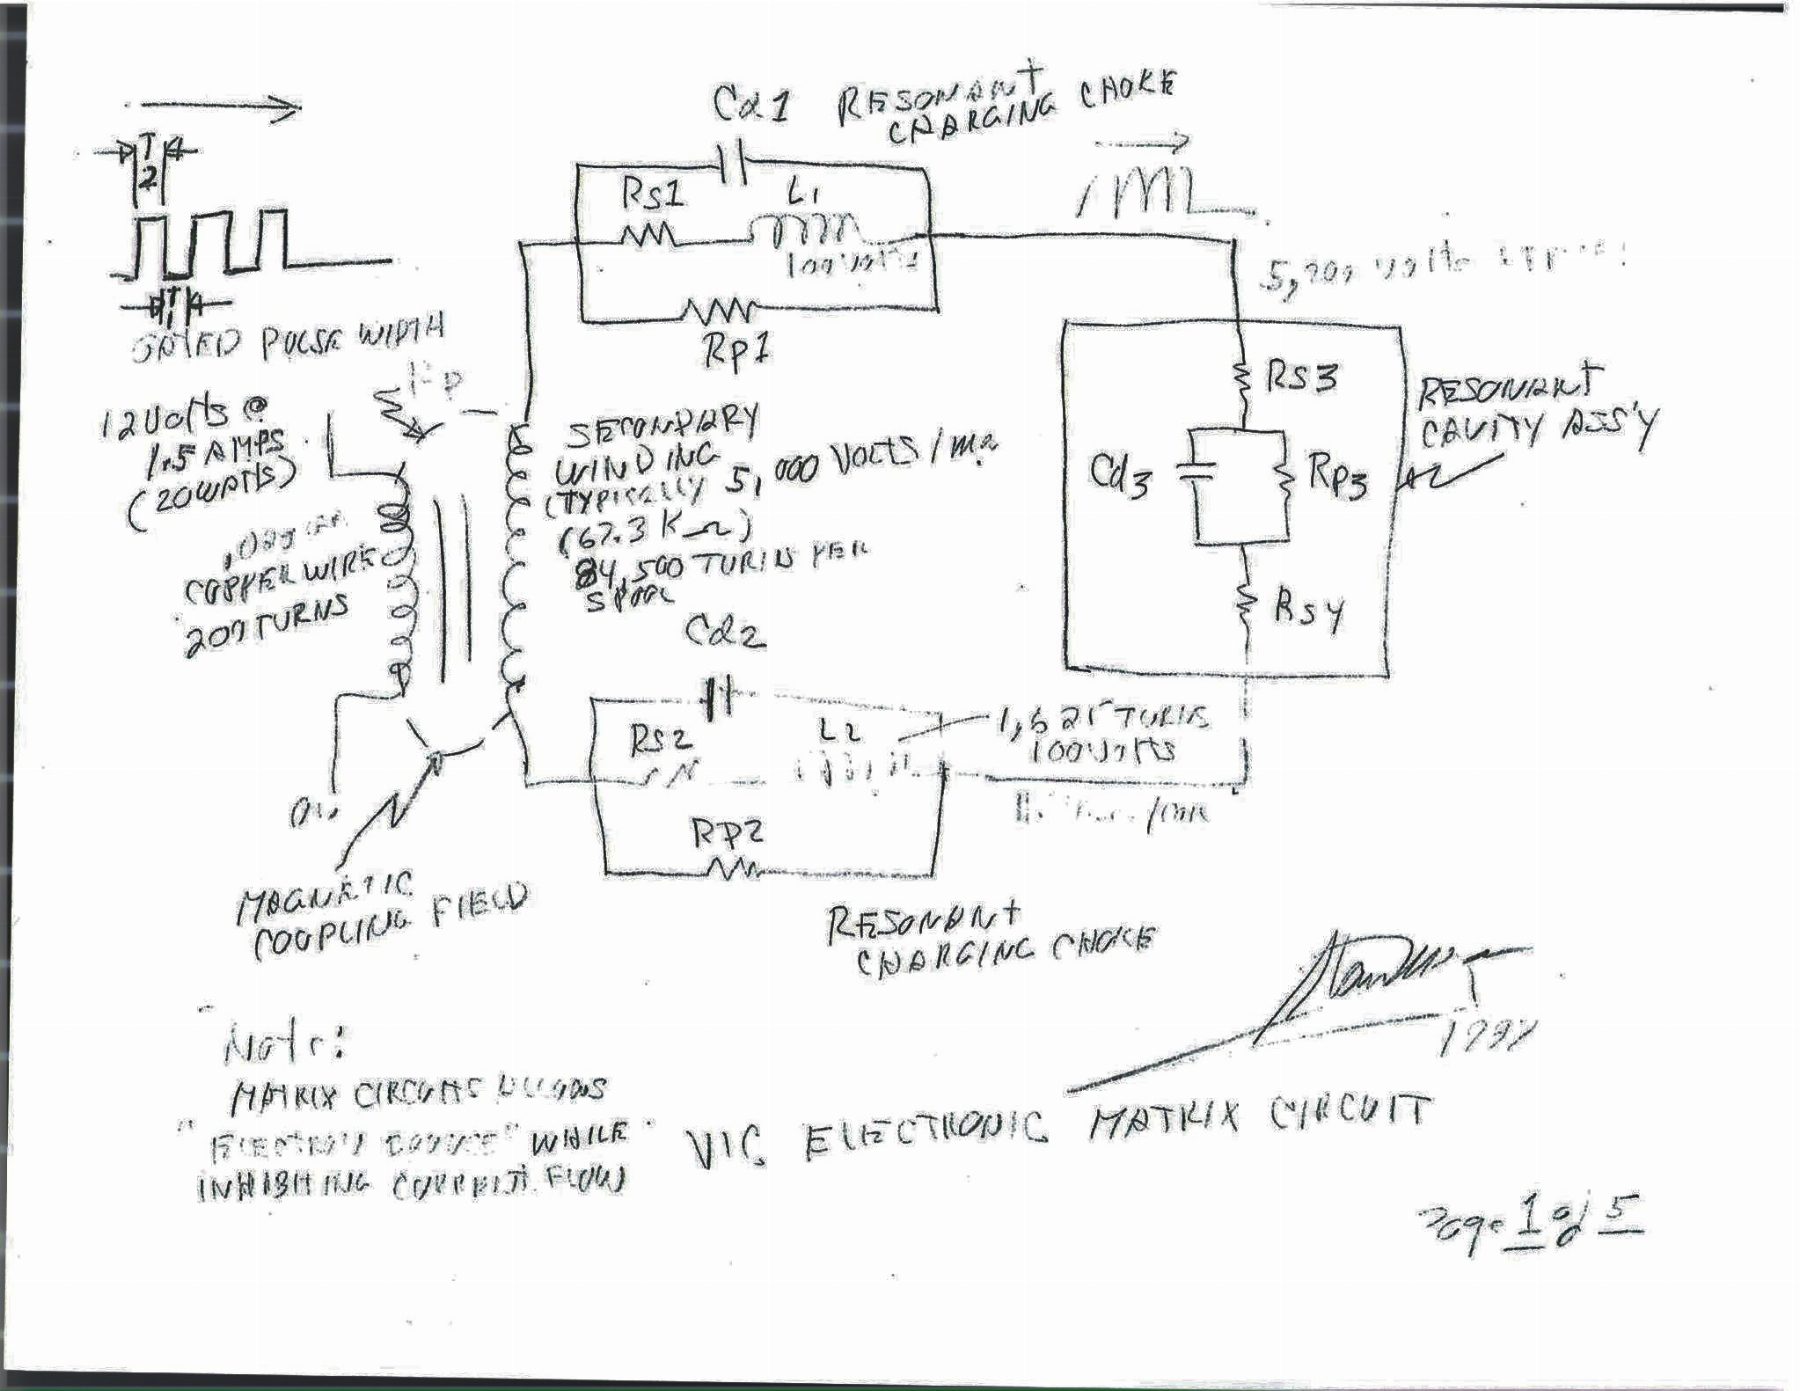 Cd1 RESONANT
CHARGING CHOKE
T
2
Rs1
L1
100 volts
Rp1
T
1
GATED PULSE WIDTH
12 Volts @
1.5 AMPS
(20 WATTS)
COPPER WIRE
200 TURNS
SECONDARY
WINDING
(TYPICALLY 5,000 VOLTS / ma
(67.3 K Ω)
84,500 TURNS PER
SPOOL
Rs3
Cd3
Rp3
Rs4
RESONANT
CAVITY ASS'Y
Cd2
Rs2
L2
TURNS
100 volts
Rp2
MAGNETIC
COUPLING FIELD
RESONANT
CHARGING CHOKE
Note:
MATRIX CIRCUITS
WHILE
INHIBITING CURRENT FLOW
VIC ELECTRONIC MATRIX CIRCUIT
Page 1 of 5